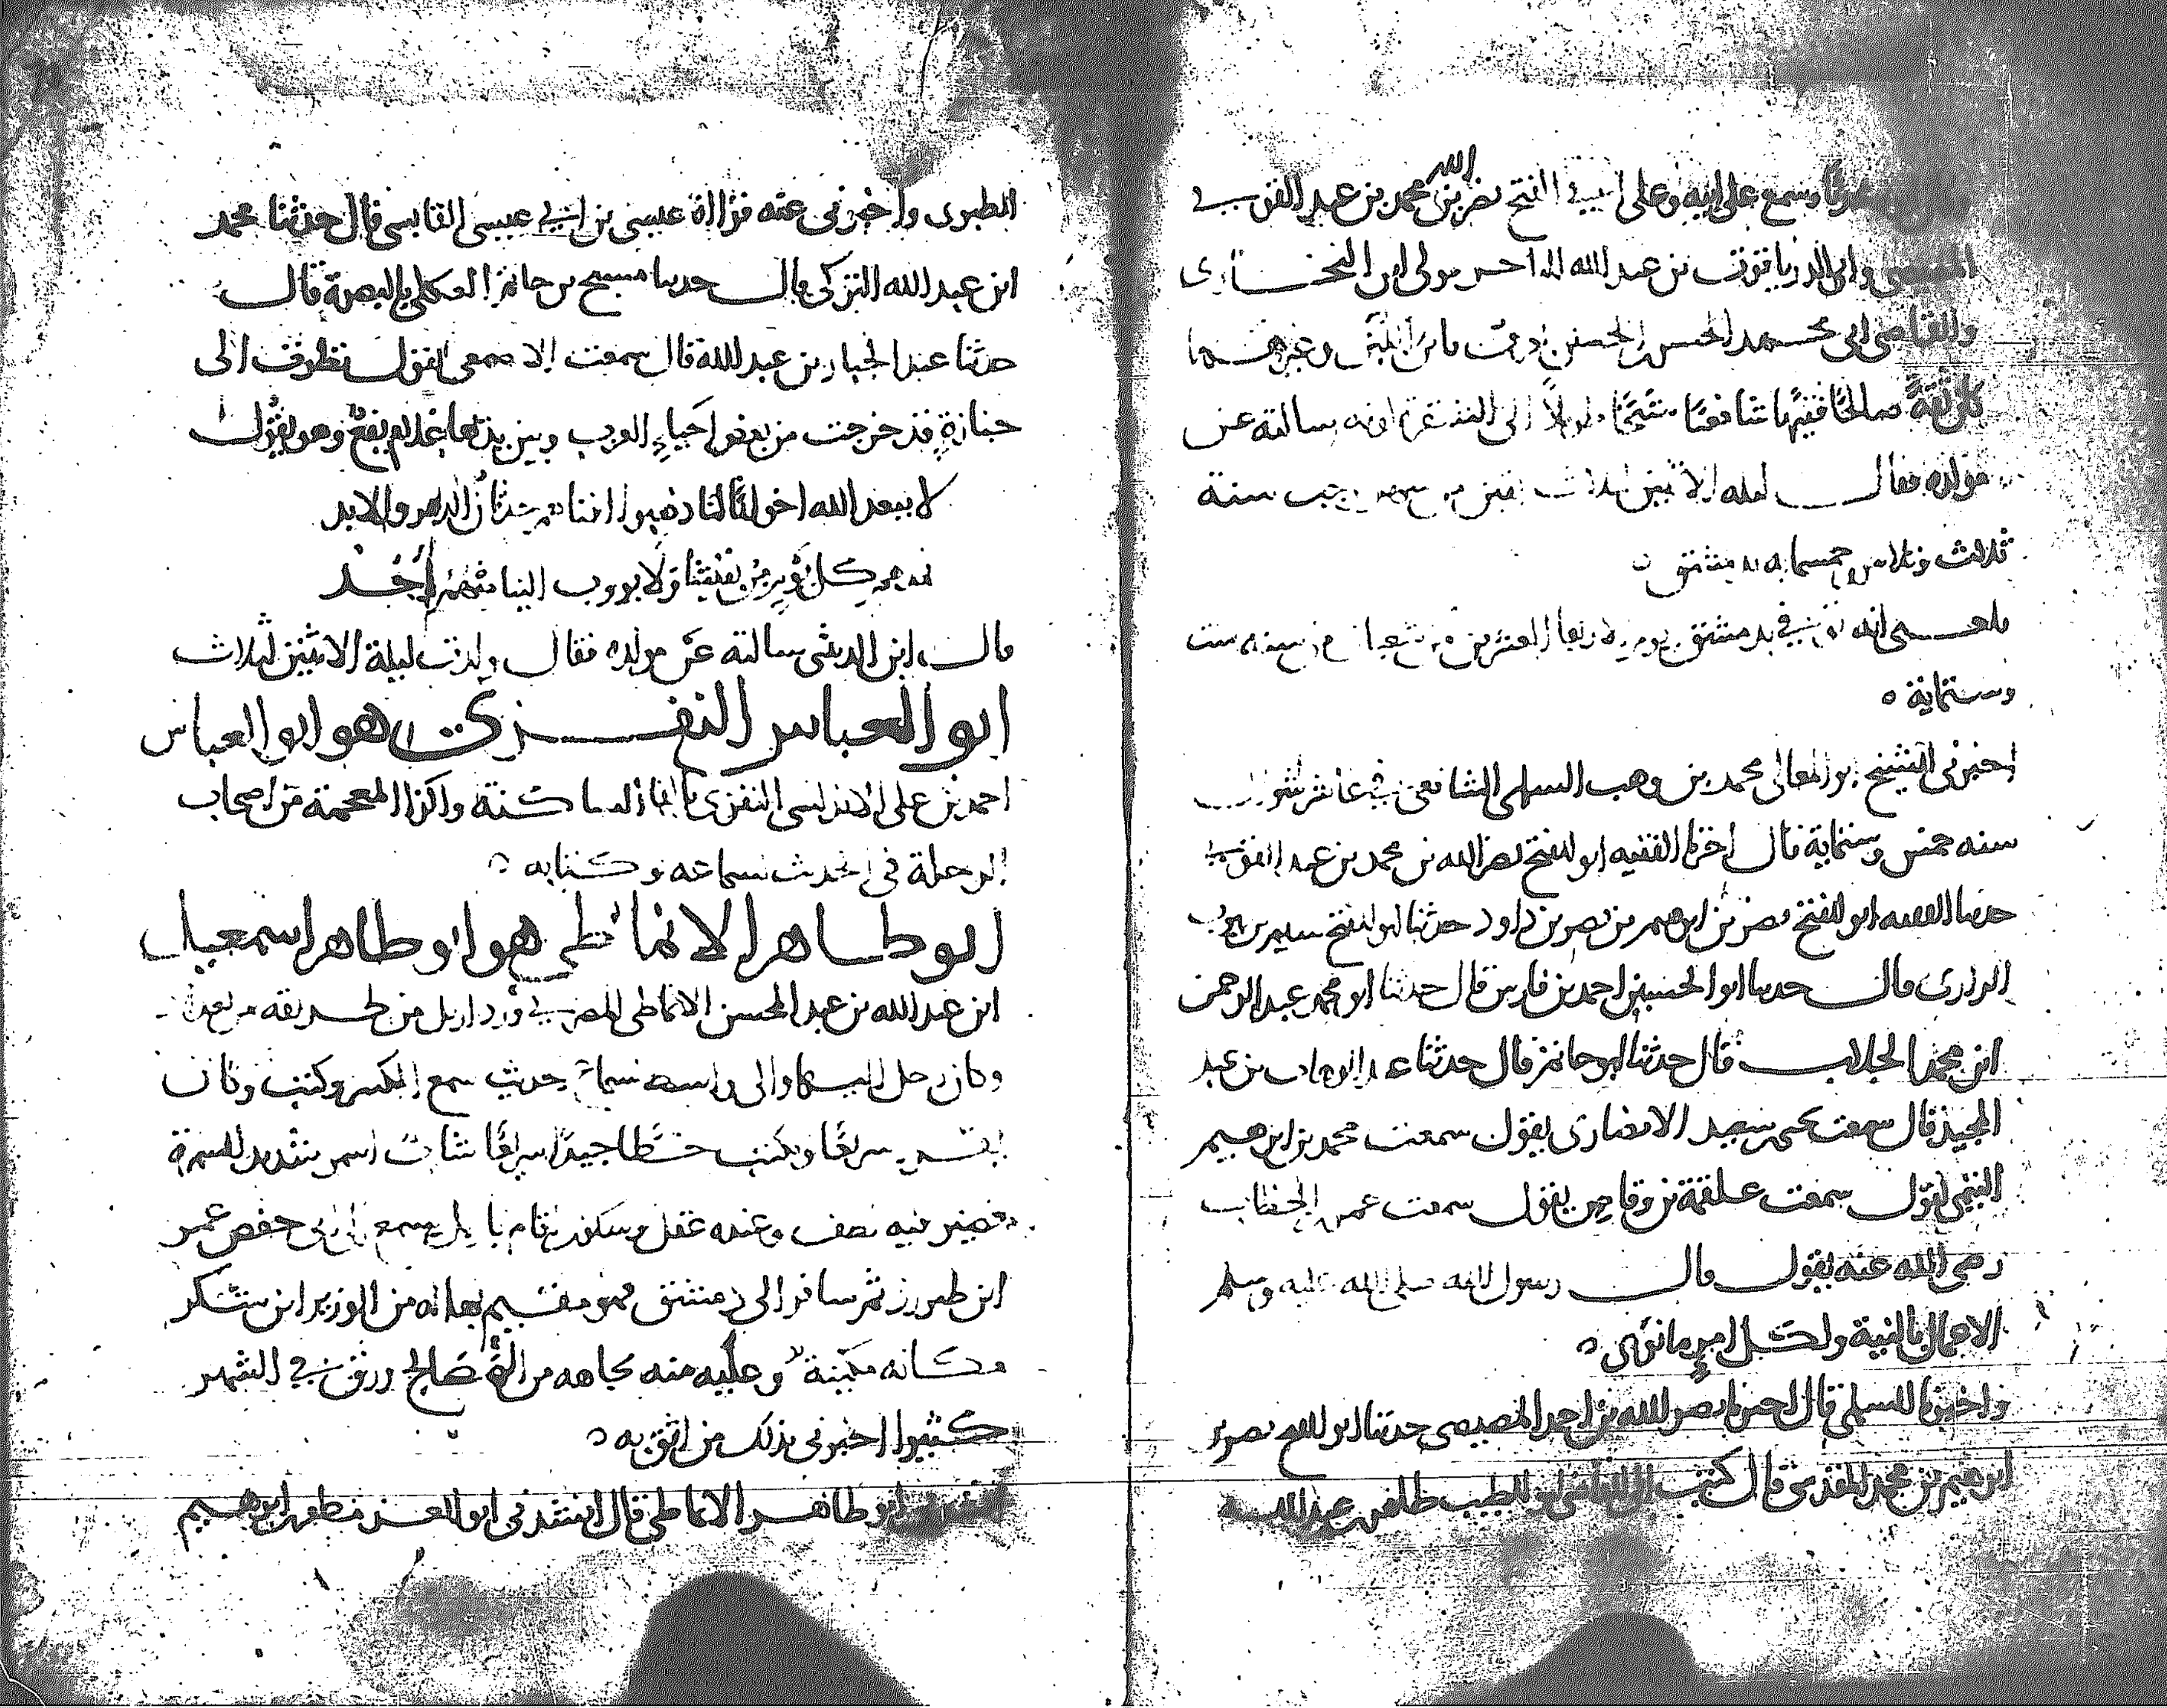 وسمع على ابيه وعلى ابي الفتح نصر الله بن محمد بن عبد القوي
وابي الدر ياقوت بن عبد الله التاجر مولى ابن البخاري
والقاضي ابي محمد الحسن بن الحسن وغيرهما
كان ثقة صالحا فقيها شافعيا شيخا سالته عن
مولده فقال ليلة الاثنين لثلاث بقين من رجب سنة
ثلاث وثلاثين وخمسماية بدمشق
بلغني انه توفي بدمشق يوم الاربعا العشرين من شعبان من سنة ست
وستماية ه
اخبرني الشيخ ابو المعالي محمد بن وهب السلمي الشافعي في عاشر شوال
سنة خمس وستماية قال اخبرنا الفقيه ابو الفتح نصر الله بن محمد بن عبد القوي
حدثنا الفقيه ابو الفتح نصر بن ابرهيم بن نصر بن داود حدثنا ابو الفتح سليم بن ايوب
الرازي قال حدثنا ابو الحسين احمد بن فارس قال حدثنا ابو محمد عبد الرحمن
ابن محمد الجلاب قال حدثنا ابو حاتم قال حدثنا عبد الوهاب بن عبد
المجيد قال سمعت يحيى بن سعيد الانصاري يقول سمعت محمد بن ابرهيم
التيمي يقول سمعت علقمة بن وقاص يقول سمعت عمر بن الخطاب
رضي الله عنه يقول قال رسول الله صلى الله عليه وسلم
الاعمال بالنية ولكل امرئ ما نوى ه
واخبرنا السلمي قال اخبرنا نصر الله بن احمد المصيصي حدثنا ابو الفتح نصر بن
ابرهيم بن محمد المقدسي قال كتب الى القاضي ابو الطيب طاهر بن عبد الله
الطبري واخبرني عنه قراءة عيسى بن ابي عيسى القابسي قال حدثنا محمد
ابن عبد الله التزكي قال حدثنا مسبح بن حاتم العكلي بالبصرة قال
حدثنا عبد الجبار بن عبد الله قال سمعت الاصمعي يقول نظرت الى
جنازة قد خرجت من بعض احياء العرب وبين يديها غلام يفع وهو يقول
لا يبعد الله اخوانا لنا ذهبوا افناهم حدثان الدهر والابد
نمدهم كل يوم من بقيتنا ولا يؤوب الينا منهم احد
قال ابن الدبيثي سالته عن مولده فقال ولدت ليلة الاثنين لثلاث
ابو العباس النفزي هو ابو العباس
احمد بن علي الاندلسي النفزي بالفا الساكنة والزا المعجمة من اصحاب
الرحلة في الحديث سماعه وكتابه ه
ابو طاهر الانماطي هو ابو طاهر اسمعيل
ابن عبد الله بن عبد المحسن الانماطي المصري ورد اربل من طريقه من بغداد
وكان رحل اليها والى واسط سماع حديث سمع الكثير وكتب وكان
يقرا سريعا ويكتب خطا جيدا سريعا شاب اسمر شديد السمرة
قصير فيه نصف وعنده عقل وسكون اقام باربل يسمع على ابي حفص عمر
ابن طبرزد ثم سافر الى دمشق فهو مقيم بها له من الوزير ابن شكر
مكانة مكينة وعليه منه بجاهه من الله صالح ورزق في الشهر
كثيرا اخبرني بذلك من اثق به ه
ابو طاهر الانماطي قال انشدني ابو العز مظفر بن ابرهيم